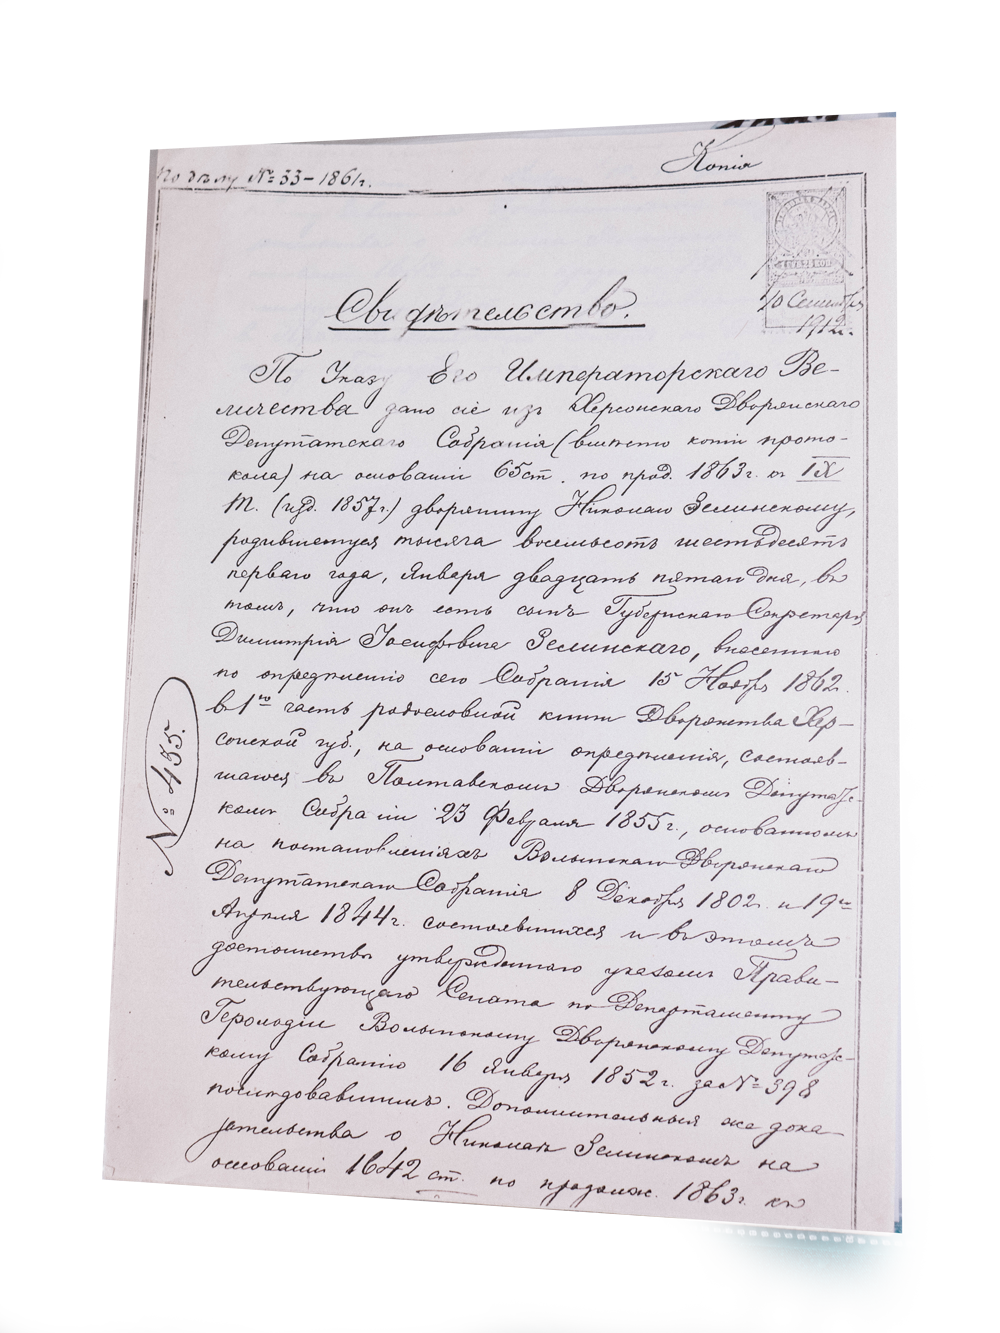 По дѣлу № 33-1861г.
Копія
10 Сентября
1912г.
Свидѣтельство.
По Указу Его Императорскаго Ве-
личества дано сіе изъ Херсонскаго Дворянскаго
Депутатскаго Собранія (вмѣсто копіи прото-
кола) на основаніи 65 ст. по прод. 1863г. къ IX
Т. (изд. 1857г.) дворянину Николаю Зелинскому,
родившемуся тысяча восемьсотъ шестьдесятъ
перваго года, Января двадцать пятаго дня, въ
томъ, что онъ есть сынъ Губернскаго Секретаря
Димитрія Іосифовича Зелинскаго, внесеннаго
по опредѣленію сего Собранія 15 Ноября 1862.
въ 1ую часть родословной книги Дворянства Хер-
сонской губ., на основаніи опредѣленія, состояв-
шагося въ Полтавскомъ Дворянскомъ Депутат-
скомъ Собраніи 23 Февраля 1855г., основанномъ
на постановленіяхъ Волынскаго Дворянскаго
Депутатскаго Собранія 8 Декабря 1802г. и 19го
Апрѣля 1844г. состоявшихся и въ этомъ
достоинствѣ утвержденнаго указомъ Прави-
тельствующаго Сената по Департаменту
Герольдіи Волынскому Дворянскому Депутат-
скому Собранію 16 Января 1852г. за № 398
послѣдовавшимъ. Дополнительныя же дока-
зательства о Николаѣ Зелинскомъ на
основаніи 1642 ст. по продолж. 1863г. къ
№ 455.